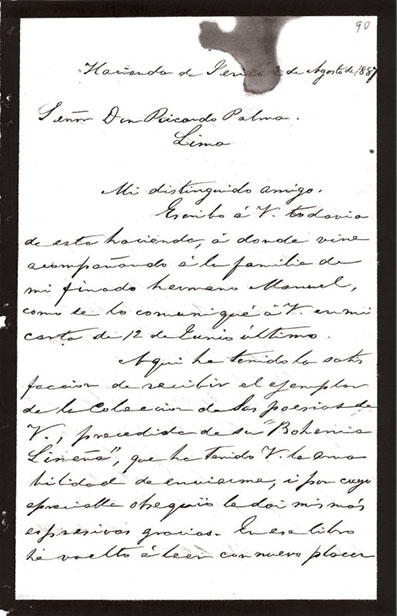 90
Hacienda de 2 de Agosto de 1887
Señor Don Ricardo Palma.
Lima
Mi distinguido amigo.
Escribo á V. todavia
de esta hacienda, á donde vine
acompañando á la familia de
mi finado hermano Manuel,
como se lo comuniqué á V. en mi
carta de 12 de Junio último.
Aqui he tenido la satis
faccion de recibir el ejemplar
de la coleccion de las poesias de
V., precedida de su "Bohemia
Limeña", que ha tenido V. la ama
bilidad de enviarme, i por cuyo
apreciable obsequio le doi mis mas
espresivas gracias. En ese libro
he vuelto á leer con nuevo placer